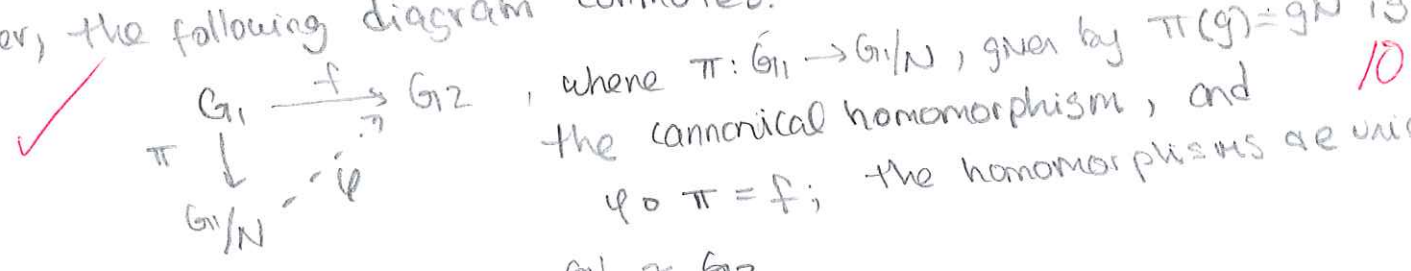 er, the following diagram
G₁ —f→ G₂ , where π: G₁ → G₁/N, given by π(g) = gN is
π ↓ φ the cannonical homomorphism, and 10
G₁/N φ ∘ π = f; the homomorphisms are